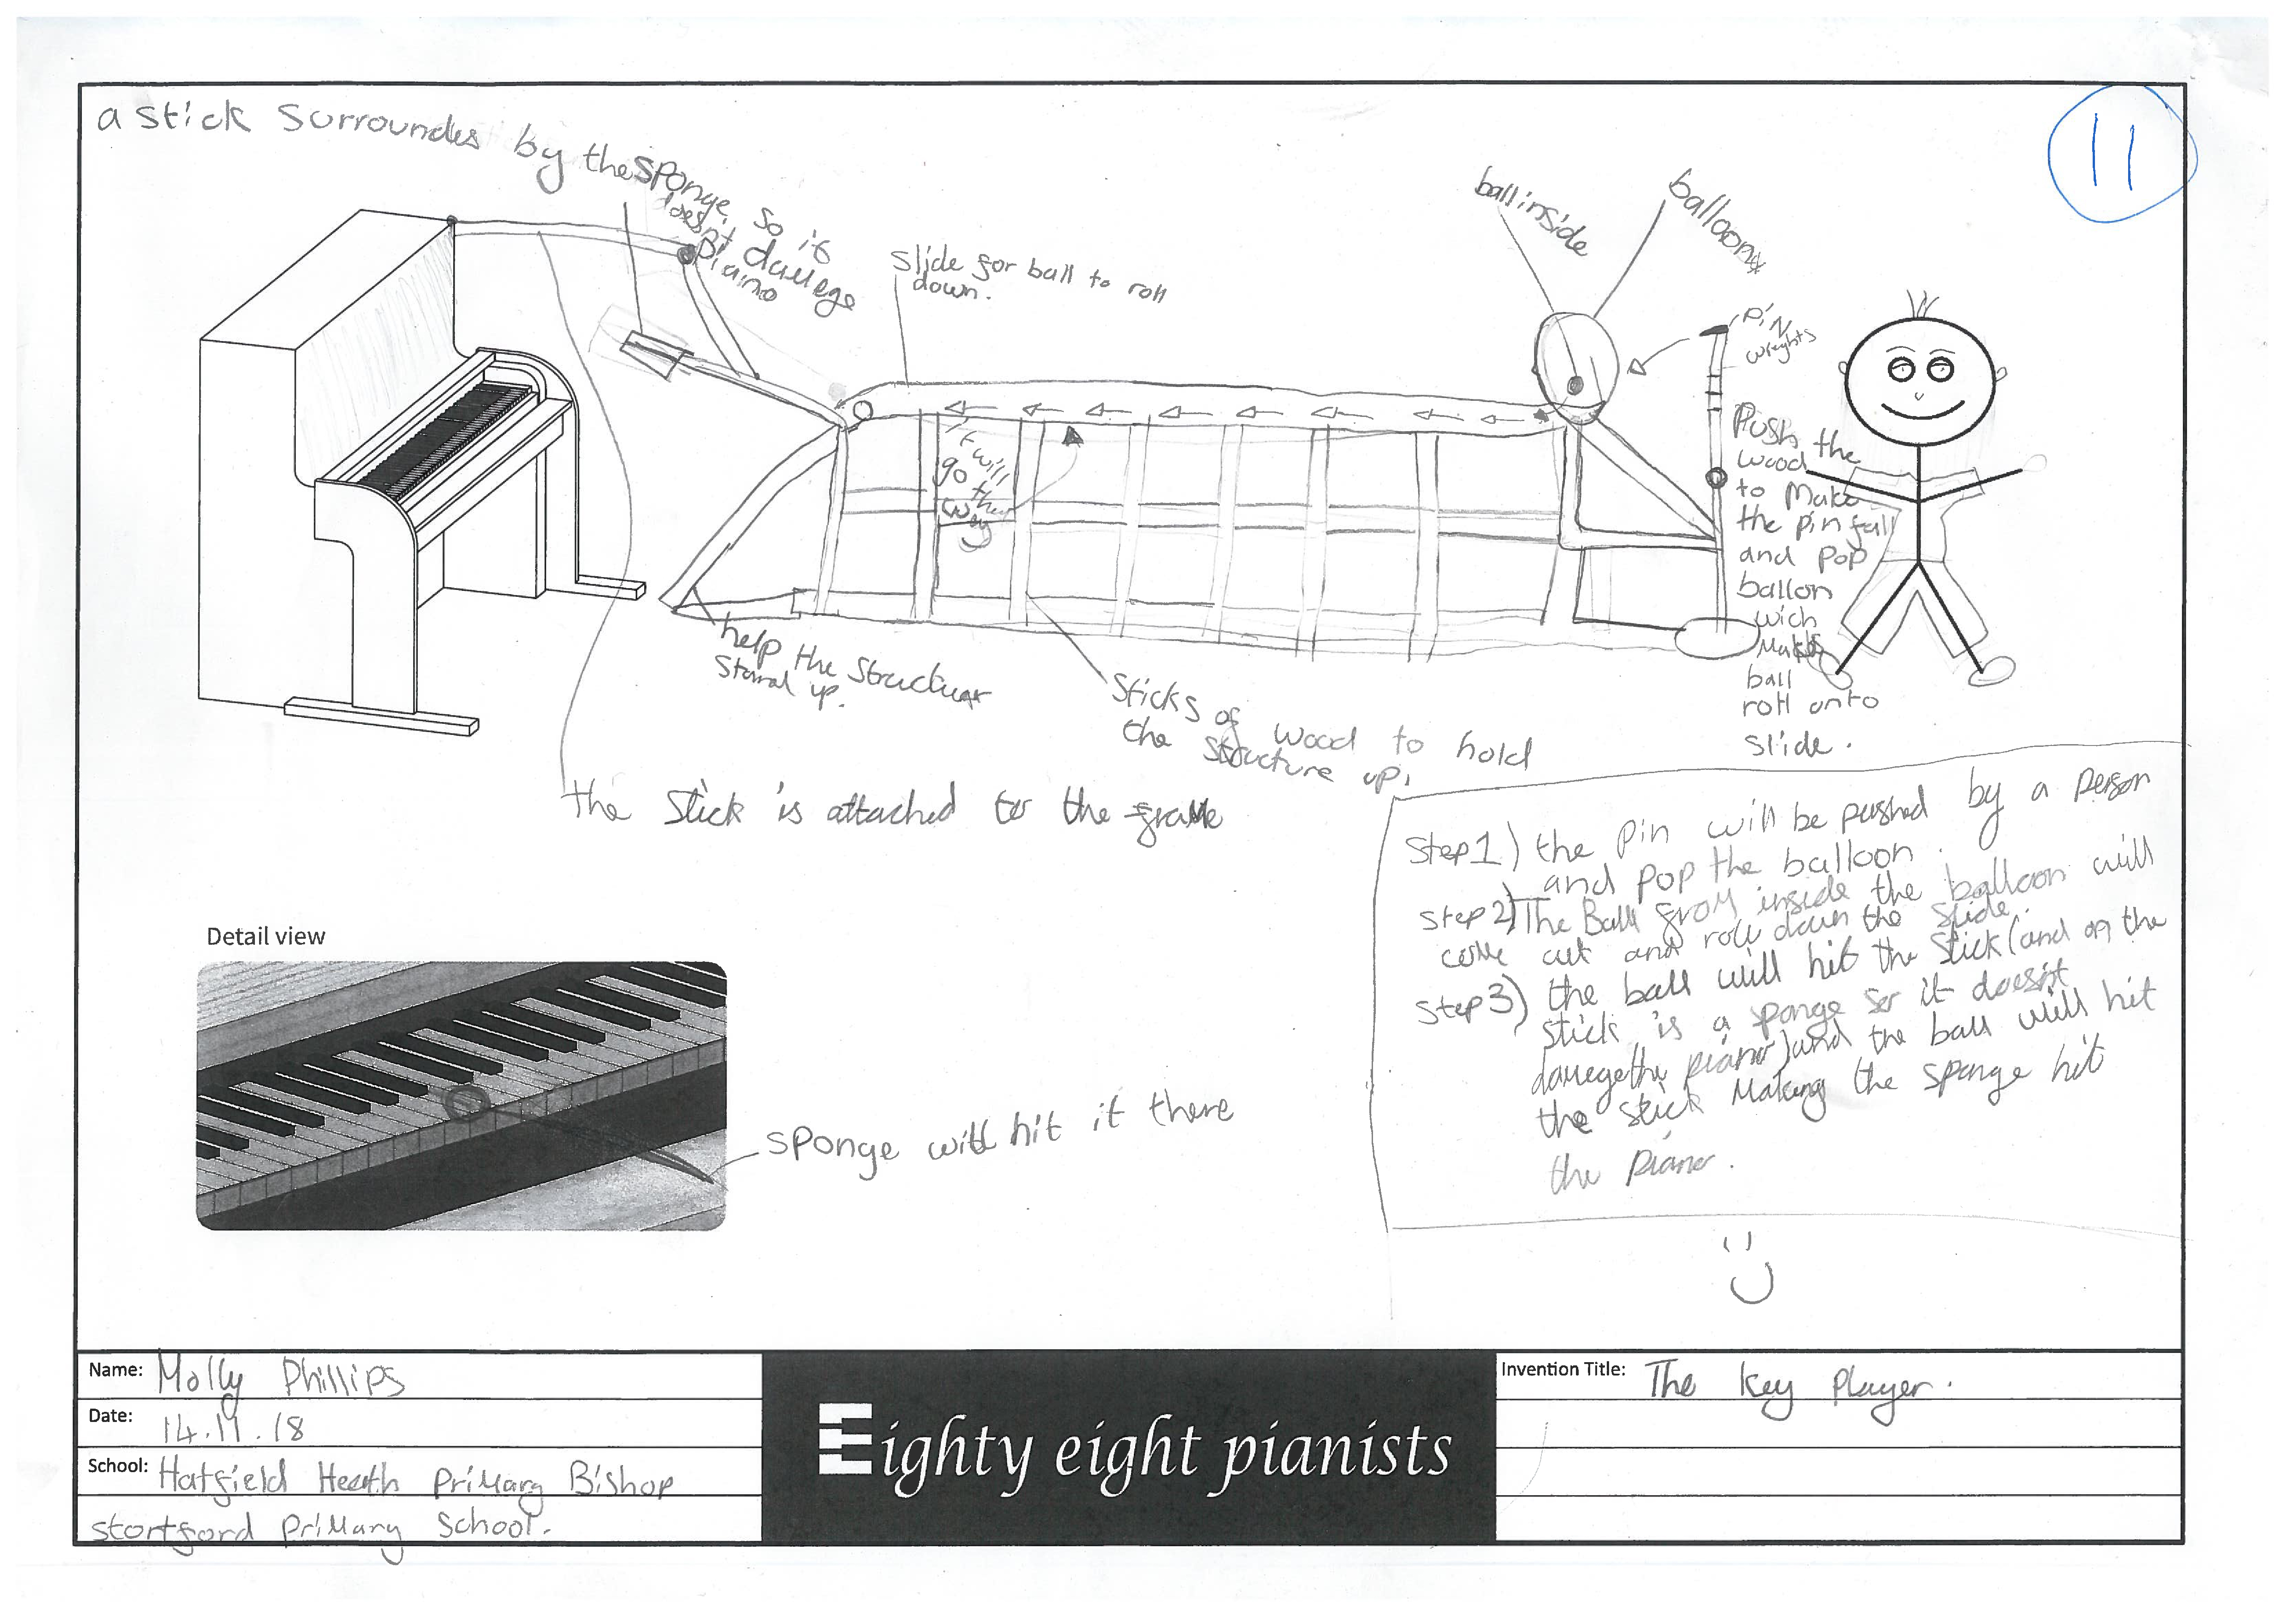 a stick surroundes by the sponge, so it
doesn't damege
piaino
11
ball inside
balloon
slide for ball to roll
down.
PiN
wieghts
Push the
wood
to Make
the pin fall
and pop
ballon
wich
Makes
ball
roll onto
slide.
it will
go this
way
help the structuer
stand up.
Sticks of wood to hold
the structure up.
the stick is attached to the frame
Step 1) the pin will be pushed by a person
and pop the balloon.
Step 2) The Ball from inside the balloon will
come out and roll down the slide.
Step 3) the ball will hit the stick (and on the
stick is a sponge so it doesn't
damege the piano) and the ball will hit
the stick Making the sponge hit
the piano.
Detail view
sponge will hit it there
Name: Molly Phillips
Date: 14.11.18
School: Hatfield Heath PriMary Bishop
stortford PriMary School.
Eighty eight pianists
Invention Title: The key Player.